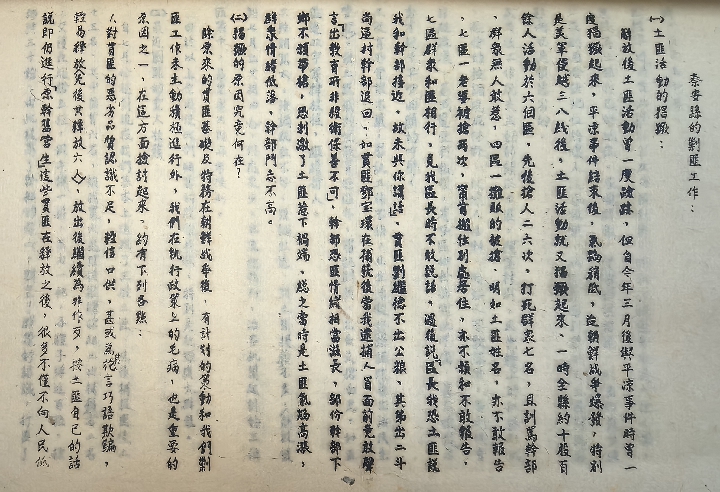 泰安县的剿匪工作：
(一)土匪活动的猖獗：
解放後土匪活动曾一度消踪，但自今年三月後与平凉事件时曾一
度猖獗起来，平凉事件结束後，气焰稍低，迨朝鲜战争爆發，特别
是美军侵越三八线後，土匪活动就又猖獗起来，一时全县约十股百
餘人活动於六個區，先後搶人二六次，打死群众七名，且訓罵幹部
，群众無人敢惹，四區一攤販的被搶，明知土匪姓名，亦不敢報告
，七區一老婆被搶兩次，甯肯搬住别處居住，亦不敢和不敢報告，
七區群众和匪相行，見我區長時不敢説話，過後訊區長我恐土匪説
我和幹部接近，故未與你講話，貫匪劉繼德不出公粮，其弟出二斗
尚逼村幹部退回，如貫匪鄧宝環在捕获後當我逮捕人員面前竟敢聲
言「出教育所非殺衛保善不可」，幹部恐匪情緒相當滋長，部份幹部下
鄉不願帶槍，恐刺激了土匪惹下禍端，总之當時是土匪氣焰高漲，
群众情緒低落，幹部鬥志不高。
(二)猖獗的原因究竟何在？
除原來的貫匪基礎及特務在朝鮮战争後，有計劃的策动和我剿
匪工作未主动積極進行外，我們在执行政策上的毛病，也是重要的
原因之一，在這方面檢討起來，約有下列各點：
1 對貫匪的惡劣品質認識不足，輕信口供，甚或為其花言巧語欺騙，
輕易釋放(先後共釋放六人)，放出後繼續為非作歹，按土匪自己的話
説即仍進行「原幹舊营生」這些貫匪在釋放之後，很多不僅不向人民低